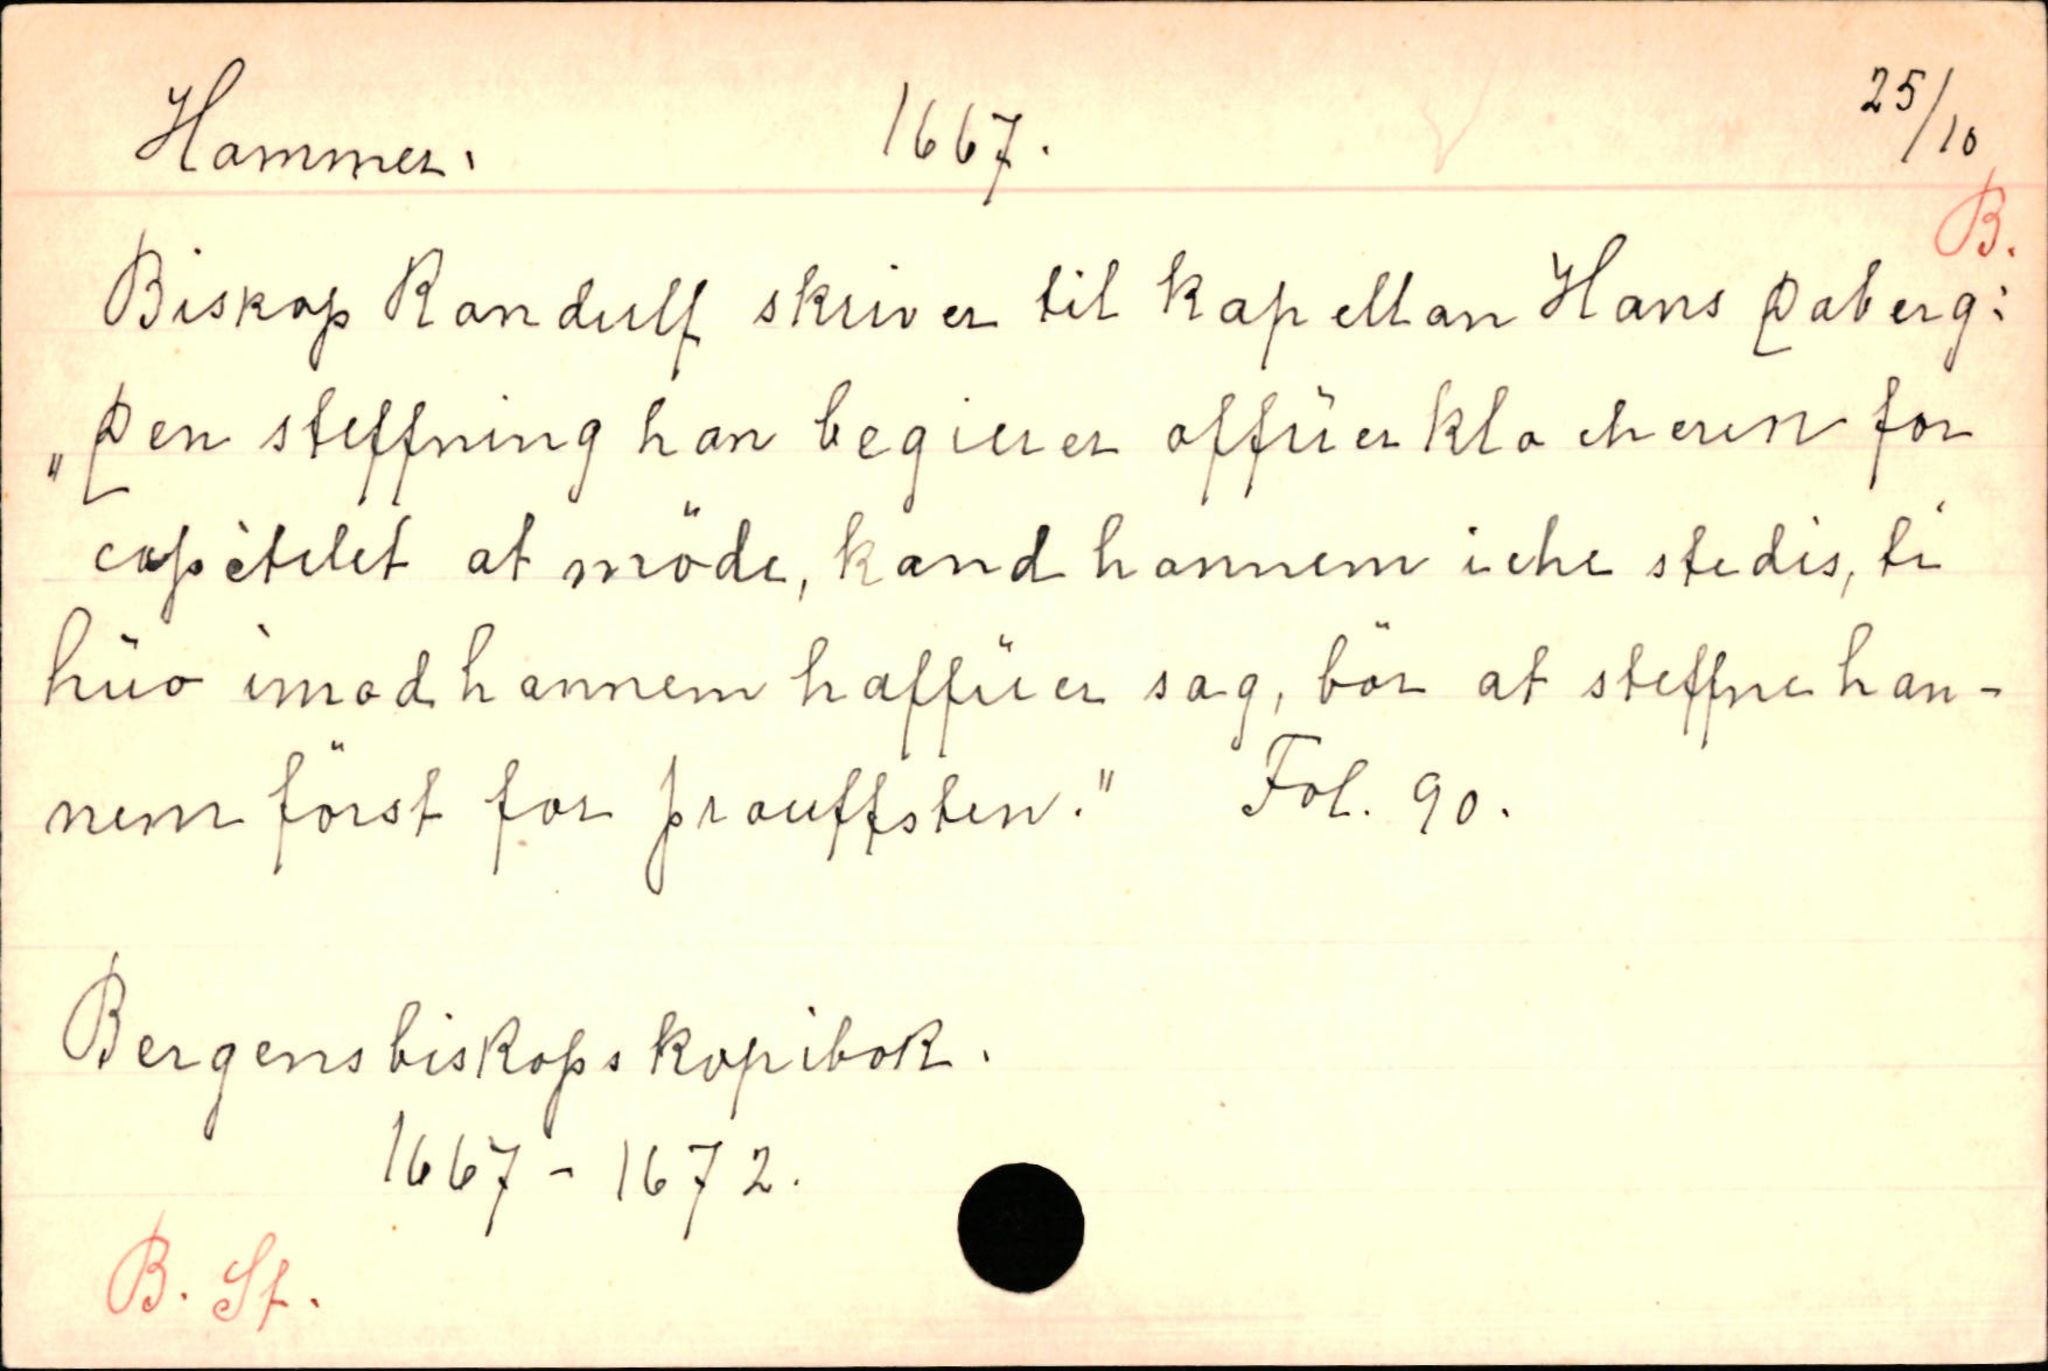 Hammer. 1667. 25/10
B.
Biskop Randulf skriver til kapellan Hans Daberg:
„Den steffning han begierer offüer klocheren for
capitelet at möde, kand hannem iche stedis, ti
hüo imod hannem haffüer sag, bör at steffne han-
nem först for prouffsten." Fol. 90.
Bergens biskops kopibok.
1667-1672.
B. St.